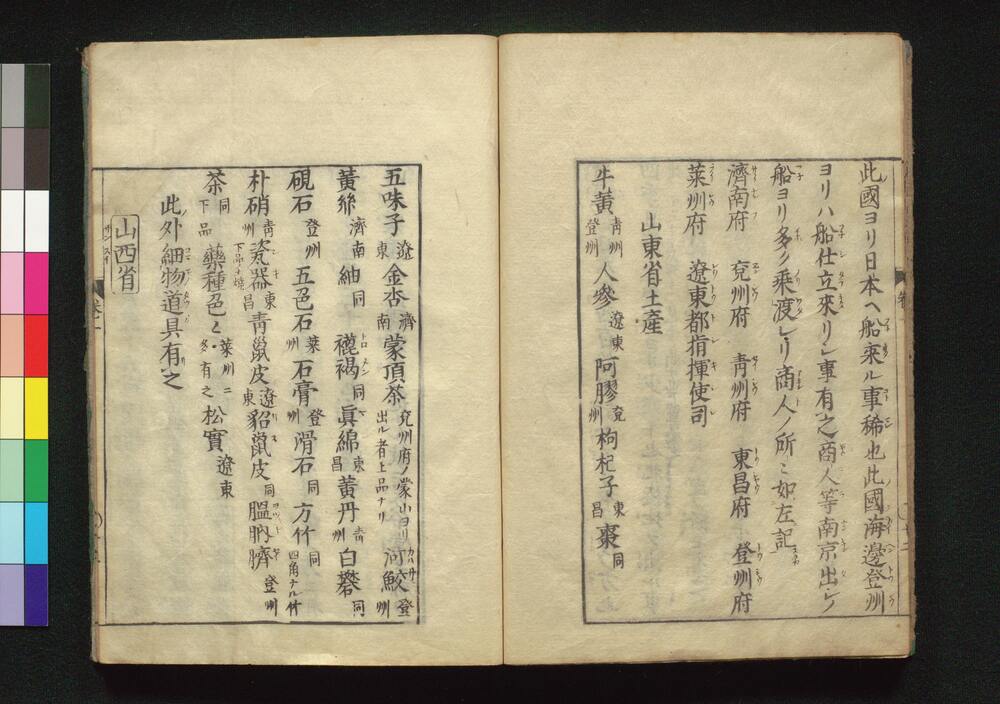 此國ヨリ日本ヘ船來ル事稀也此國海邊登州
ヨリハ船仕立來リシ事有之商人等南京出シノ
船ヨリ多ク乘渡レリ商人ノ所〻如左記
濟南府 兗州府 靑州府 東昌府 登州府
萊州府 遼東都指揮使司
山東省土產
牛黃 靑州 登州 人參 遼東 阿膠 兗州 枸杞子 東昌 棗 同
五味子 遼東 金杏 濟南 蒙頂茶 兗州府ノ蒙山ヨリ出ル者上品ナリ 河鮫 登州
黃絲 濟南 紬 同 褐 同 眞綿 東昌 黃丹 靑州 白礬 同
硯石 登州 五色石 萊州 石膏 登州 滑石 同 方竹 同 四角ナル竹
朴硝 靑州 瓷器 東昌 下品ナル燒 靑鼠皮 遼東 貂鼠皮 同 膃肭臍 登州
茶 同 下品 藥種色〻 萊州ニ多有之 松實 遼東
此外細物道具有之
山西省
卷二